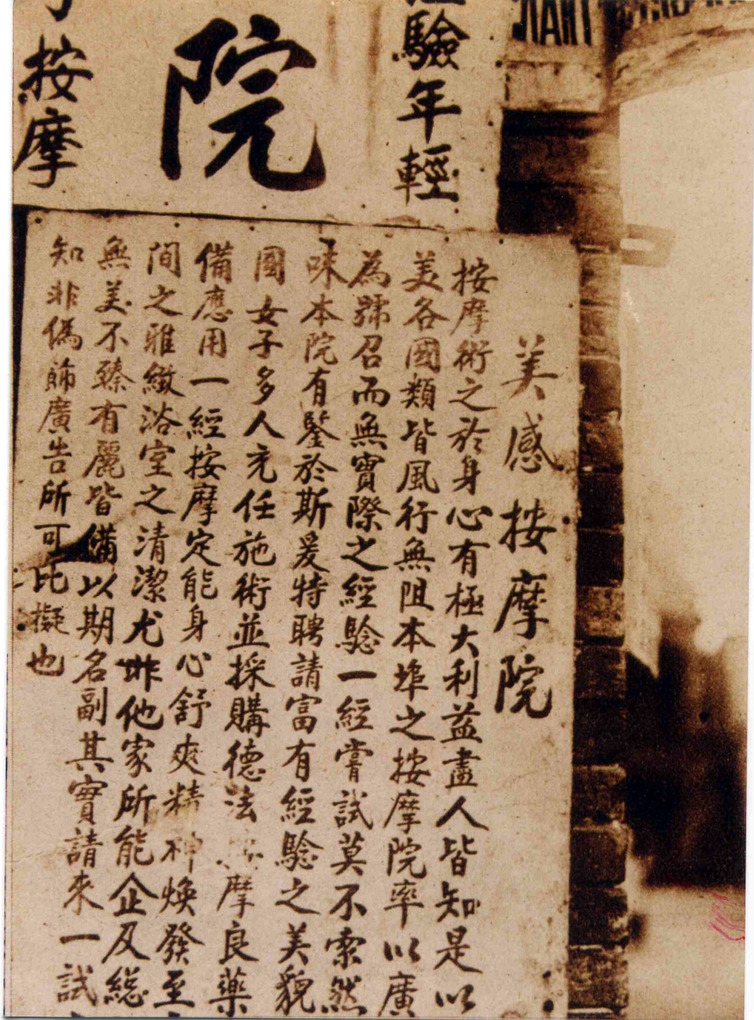 驗年輕
院
按摩
美感按摩院
按摩術之於身心有極大利益盡人皆知是以
美各國類皆風行無阻本埠之按摩院率以廣
為號召而無實際之經驗一經嘗試莫不索然
味本院有鑒於斯爰特聘請富有經驗之美貌
國女子多人充任施術並採購德法摩良藥
備應用一經按摩定能身心舒爽精神煥發至
間之雅緻浴室之清潔尤非他家所能企及總
無美不臻有麗皆備以期名副其實請來一試
知非偽飾廣告所可比擬也